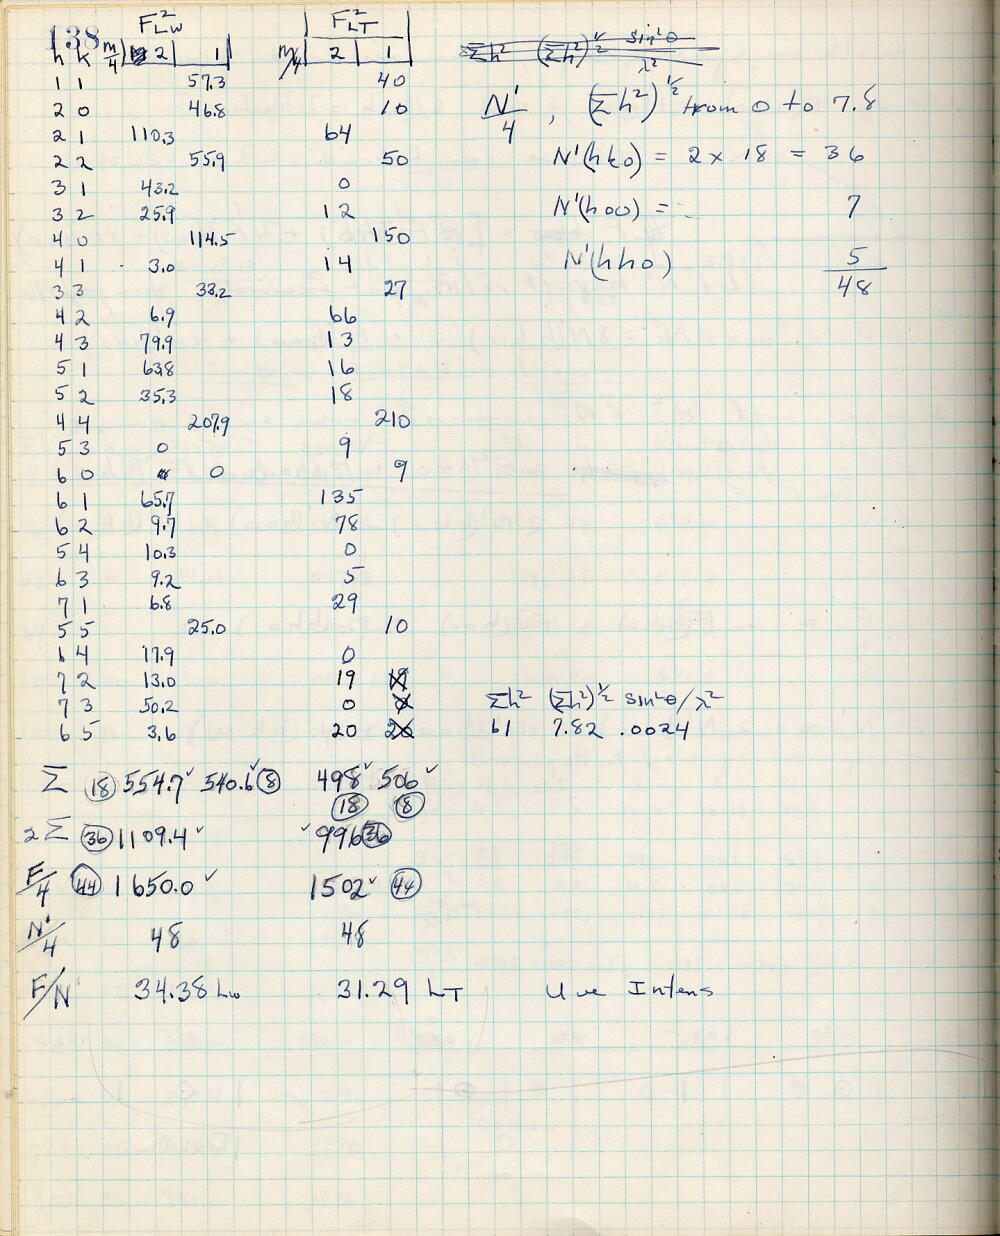 138 F²LW F²LT
h k m/4 2 1 m/4 2 1 Σh² (Σh²)^½ sin²θ/λ²
1 1 57.3 40
2 0 46.8 10 N'/4, (Σh²)^½ from 0 to 7.8
2 1 110.3 64
2 2 55.9 50 N'(hk0) = 2 x 18 = 36
3 1 43.2 0
3 2 25.9 12 N'(h00) = 7
4 0 114.5 150
4 1 3.0 14 N'(hh0) 5
3 3 33.2 27 48
4 2 6.9 66
4 3 79.9 13
5 1 63.8 16
5 2 35.3 18
4 4 207.9 210
5 3 0 9
6 0 0 9
6 1 65.7 135
6 2 9.7 78
5 4 10.3 0
6 3 9.2 5
7 1 6.8 29
5 5 25.0 10
6 4 17.9 0
7 2 13.0 19 19
7 3 50.2 0 0 Σh² (Σh²)^½ sin²θ/λ²
6 5 3.6 20 20 61 7.82 .0024
Σ (18) 554.7✓ 540.6✓ (8) 498✓ 506✓
(18) (8)
2Σ (36) 1109.4✓ ✓996 (36)
F/4 (44) 1650.0✓ 1502✓ (44)
N'/4 48 48
F/N' 34.38 Lw 31.29 LT Use Intens